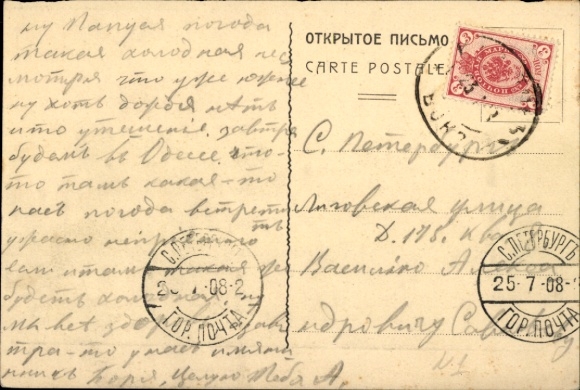 ну Папуля погода
такая холодная нес
мотря что уже южнее
ну хоть дождя нѣтъ
и то утешеніе. завтра
будемъ въ Одессе. что-
то тамъ какая-то
насъ погода встретитъ
ужасно непріятно
если и тамъ такая же
будетъ холодная
мы всѣ здоровы завтра-то у насъ имянин
никъ Боря, целую Тебя А.
ОТКРЫТОЕ ПИСЬМО
CARTE POSTALE
С. Петербургъ
Лиговская улица
Д. 175. кв
Василію Алекса
ндровичу
С.ПЕТЕРБУРГЪ
25-7-08-2
ГОР. ПОЧТА
С.ПЕТЕРБУРГЪ
25-7-08-
ГОР. ПОЧТА